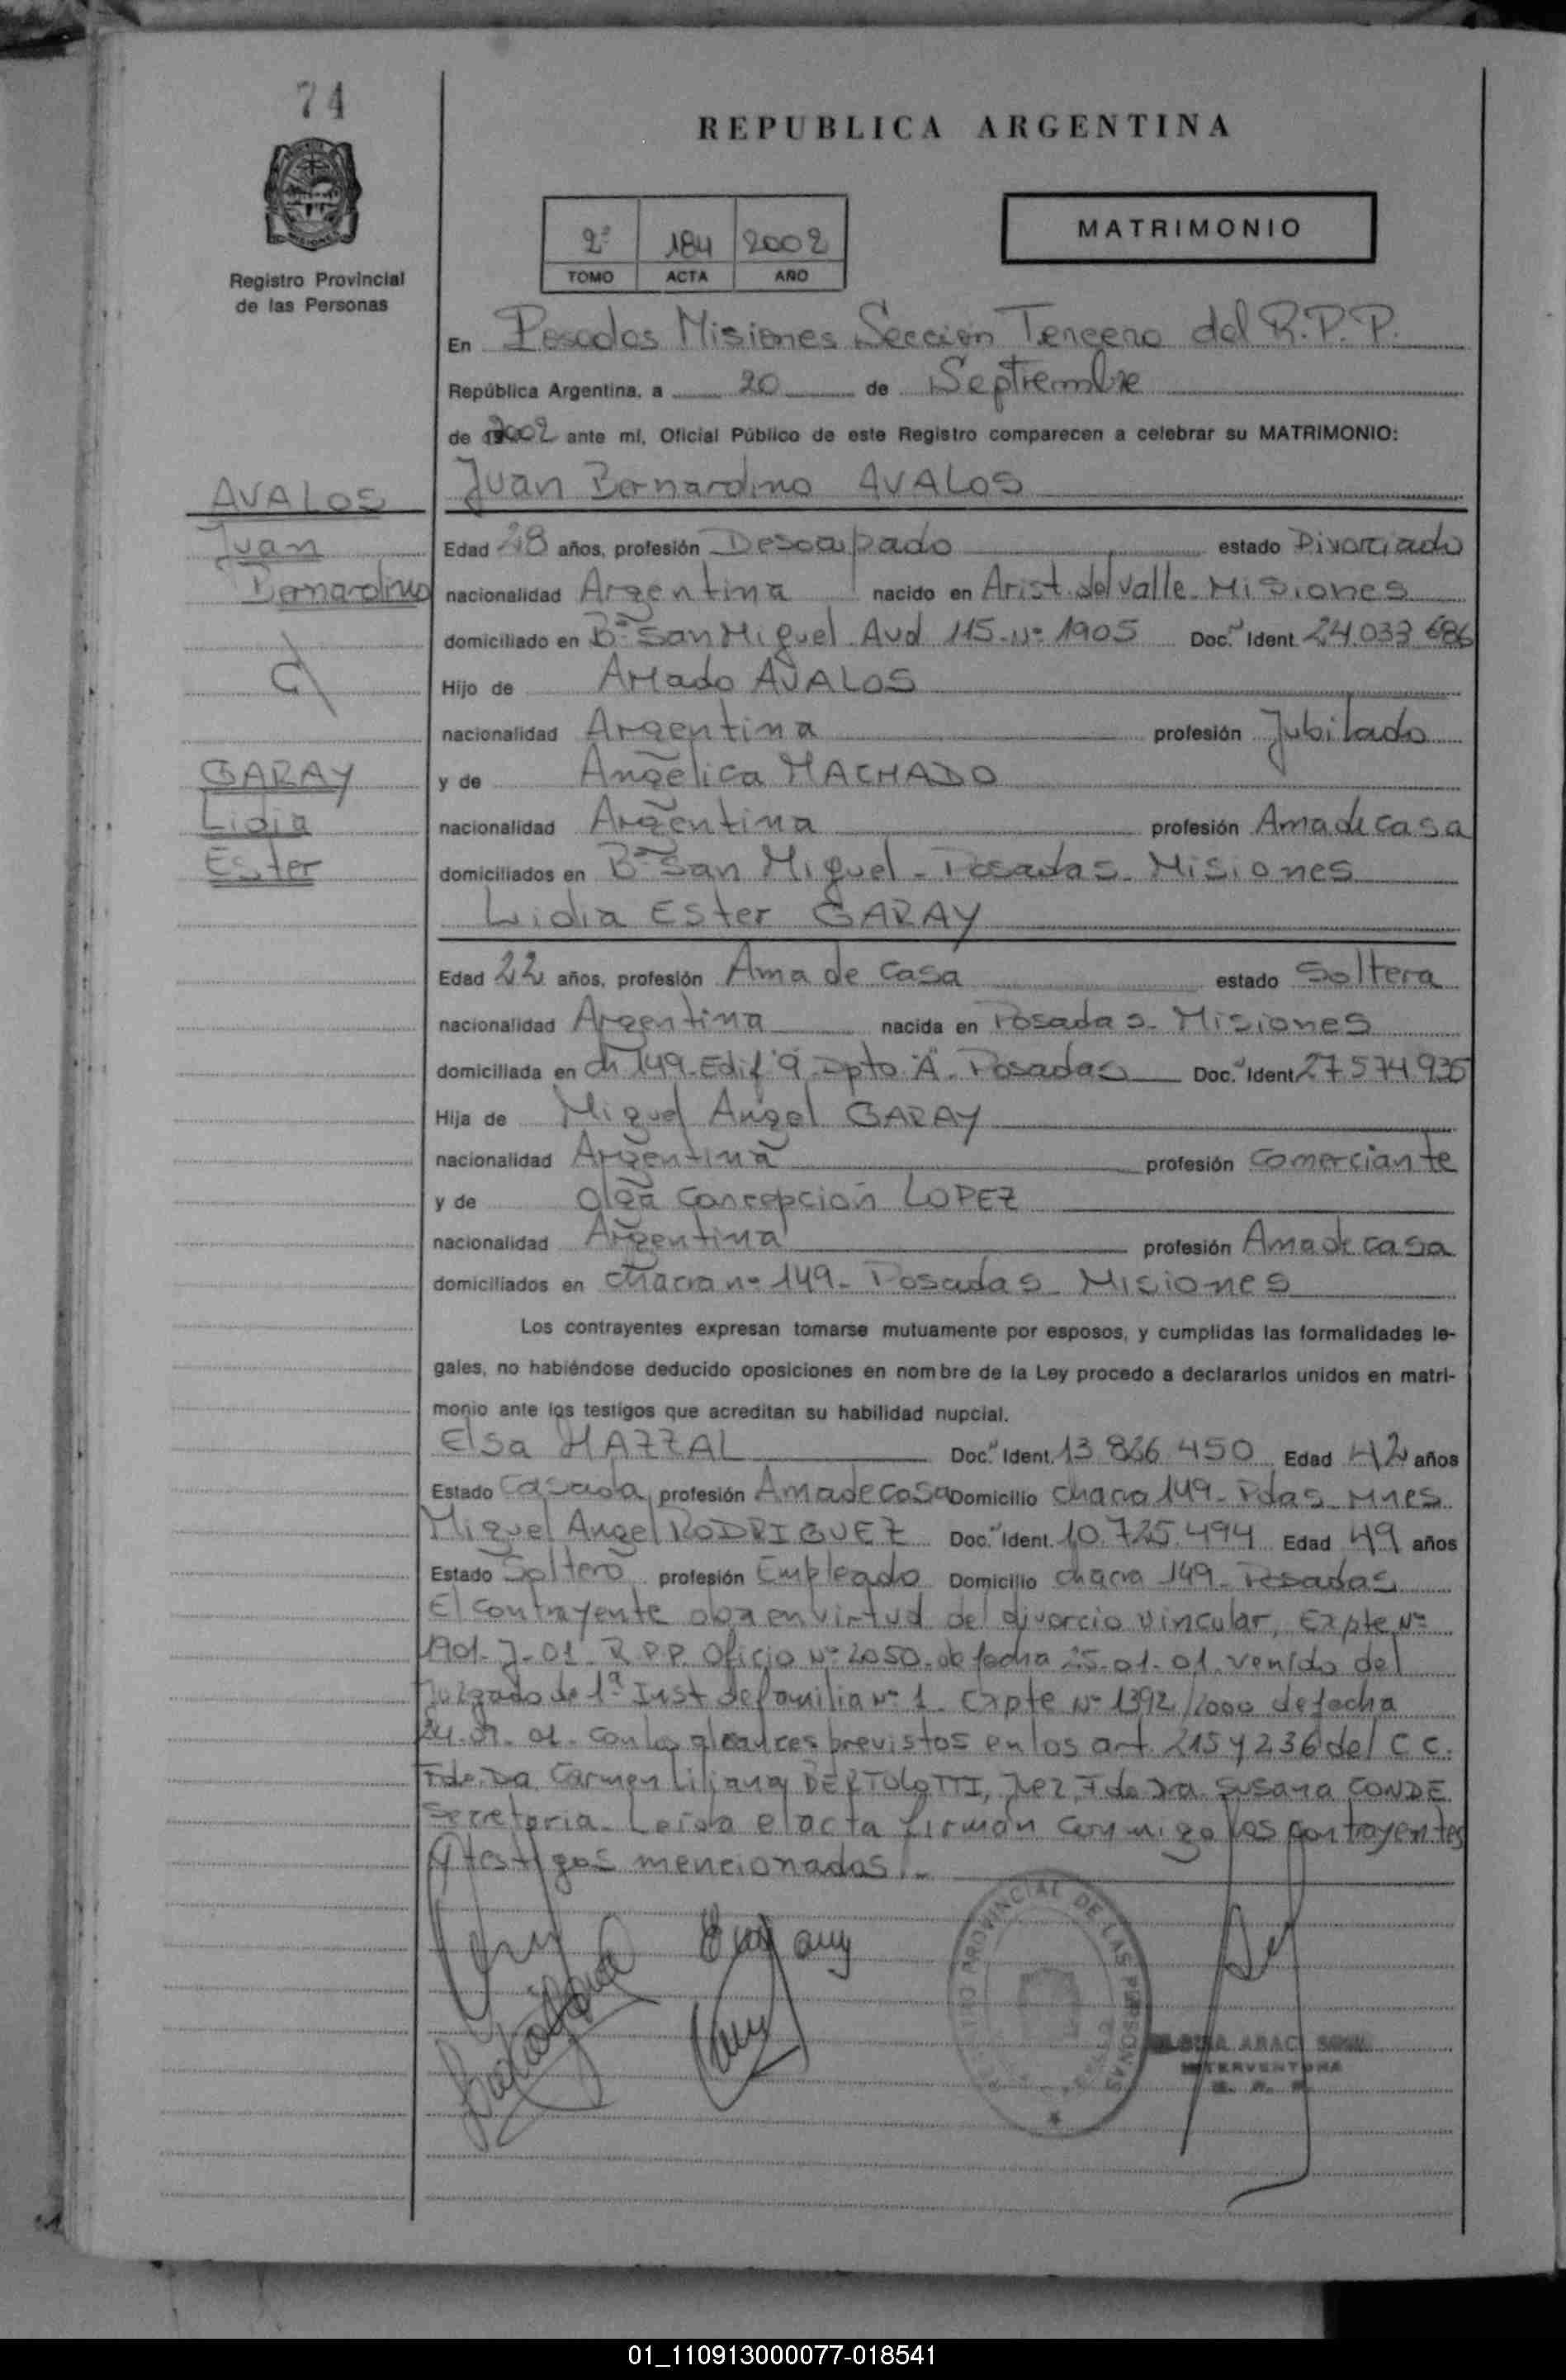 74
REPUBLICA ARGENTINA
Registro Provincial
de las Personas
2º 184 2002
TOMO ACTA AÑO
MATRIMONIO
En Posadas Misiones Sección Tercera del R.P.P.
República Argentina, a 20 de Septiembre
de 2002 ante mí, Oficial Público de este Registro comparecen a celebrar su MATRIMONIO:
Juan Bernardino AVALOS
AVALOS
Juan
Bernardino
GARAY
Lidia
Ester
Edad 28 años, profesión Desocupado estado Divorciado
nacionalidad Argentina nacido en Arist. del Valle Misiones
domiciliado en Bº San Miguel Avd 115 Nº 1905 Doc. Ident. 24.033 686
Hijo de Amado AVALOS
nacionalidad Argentina profesión Jubilado
y de Angélica MACHADO
nacionalidad Argentina profesión Ama de casa
domiciliados en Bº San Miguel - Posadas - Misiones
Lidia Ester GARAY
Edad 22 años, profesión Ama de casa estado Soltera
nacionalidad Argentina nacida en Posadas - Misiones
domiciliada en ch 149 - Edif 9 - Dpto "A" - Posadas Doc. Ident. 27.574.935
Hija de Miguel Angel GARAY
nacionalidad Argentina profesión Comerciante
y de Olga Concepción LOPEZ
nacionalidad Argentina profesión Ama de casa
domiciliados en chacra nº 149 - Posadas - Misiones
Los contrayentes expresan tomarse mutuamente por esposos, y cumplidas las formalidades le-
gales, no habiéndose deducido oposiciones en nombre de la Ley procedo a declararlos unidos en matri-
monio ante los testigos que acreditan su habilidad nupcial.
Elsa MAZZAL Doc. Ident. 13 866 450 Edad 42 años
Estado Casada profesión Ama de casa Domicilio chacra 149 - Pdas - Mnes
Miguel Angel RODRIGUEZ Doc. Ident. 10.725.494 Edad 49 años
Estado Soltero profesión Empleado Domicilio chacra 149 - Posadas
El contrayente obra en virtud del divorcio vincular, Expte Nº
1901-J-01 R.P.P. Oficio Nº 2050 de fecha 25.01.01 venido del
Juzgado de 1ª Inst de familia Nº 1 - Expte Nº 1392/2000 de fecha
con los alcances previstos en los art. 215 y 236 del C C.
Fdo. Dra. Carmen Liliana BERTOLOTTI, Juez, Fdo Dra. Susana CONDE
Secretaria - Leída el acta firman conmigo los contrayentes
y testigos mencionados.-
PROVINCIAL DE LAS PERSONAS
ARACI
INTERVENTORA
01_110913000077-018541